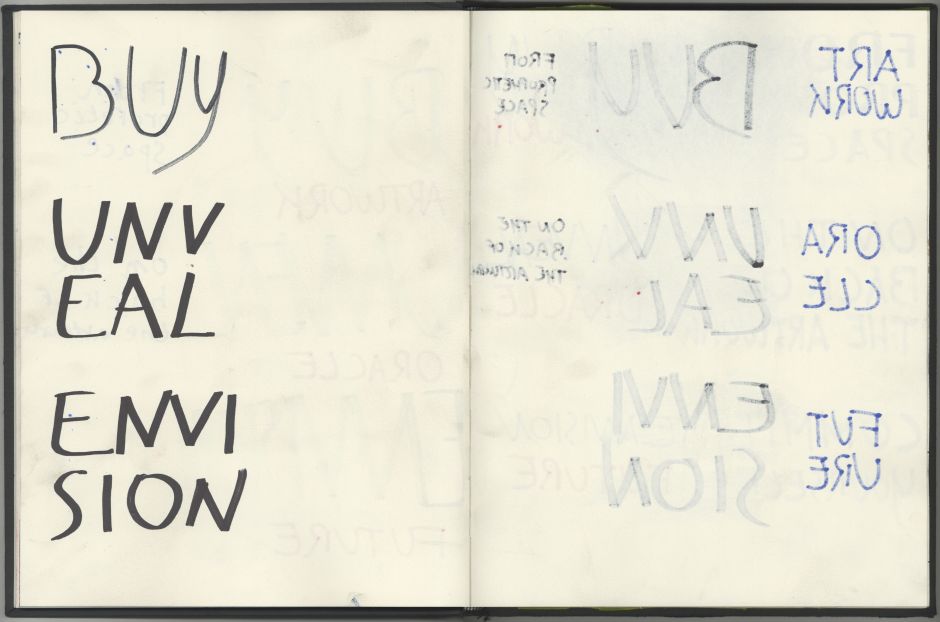 BUY
UNV
EAL
ENVI
SION
FROM
PROPHETIC
SPACE
BUY
ART
WORK
ON THE
BACK OF
THE ARTWORK
UNV
EAL
ORA
CLE
ENVI
SION
FUT
URE
ARTWORK
ORACLE
FUTURE